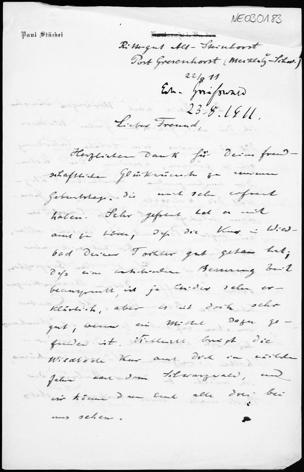 NE030183
Paul Stäckel
Rittergut Alt-Steinhorst
Post Gresenhorst (Mecklbg-Schw.)
22/8 11
Edm. Greifswald
23.8.1911.
Lieber Freund,
Herzlichen Dank für Deine freund-
schaftlichen Glückwünsche zu meinem
Geburtstage, die mich sehr erfreut
haben. Sehr gefreut hat es mich
auch zu hören, daß die Kur in Wied-
bad Deiner Tochter gut getan hat;
daß eine Besserung Zeit
beansprucht, ist ja leider sehr er-
klärlich, aber es ist doch sehr
gut, wenn ein Mittel dagegen ge-
funden ist. Vielleicht bringt die
Kur auch Dich im nächsten
Jahre aus dem Schwarzwald, und
wir können Dann Euch alle Drei bei
uns sehen.